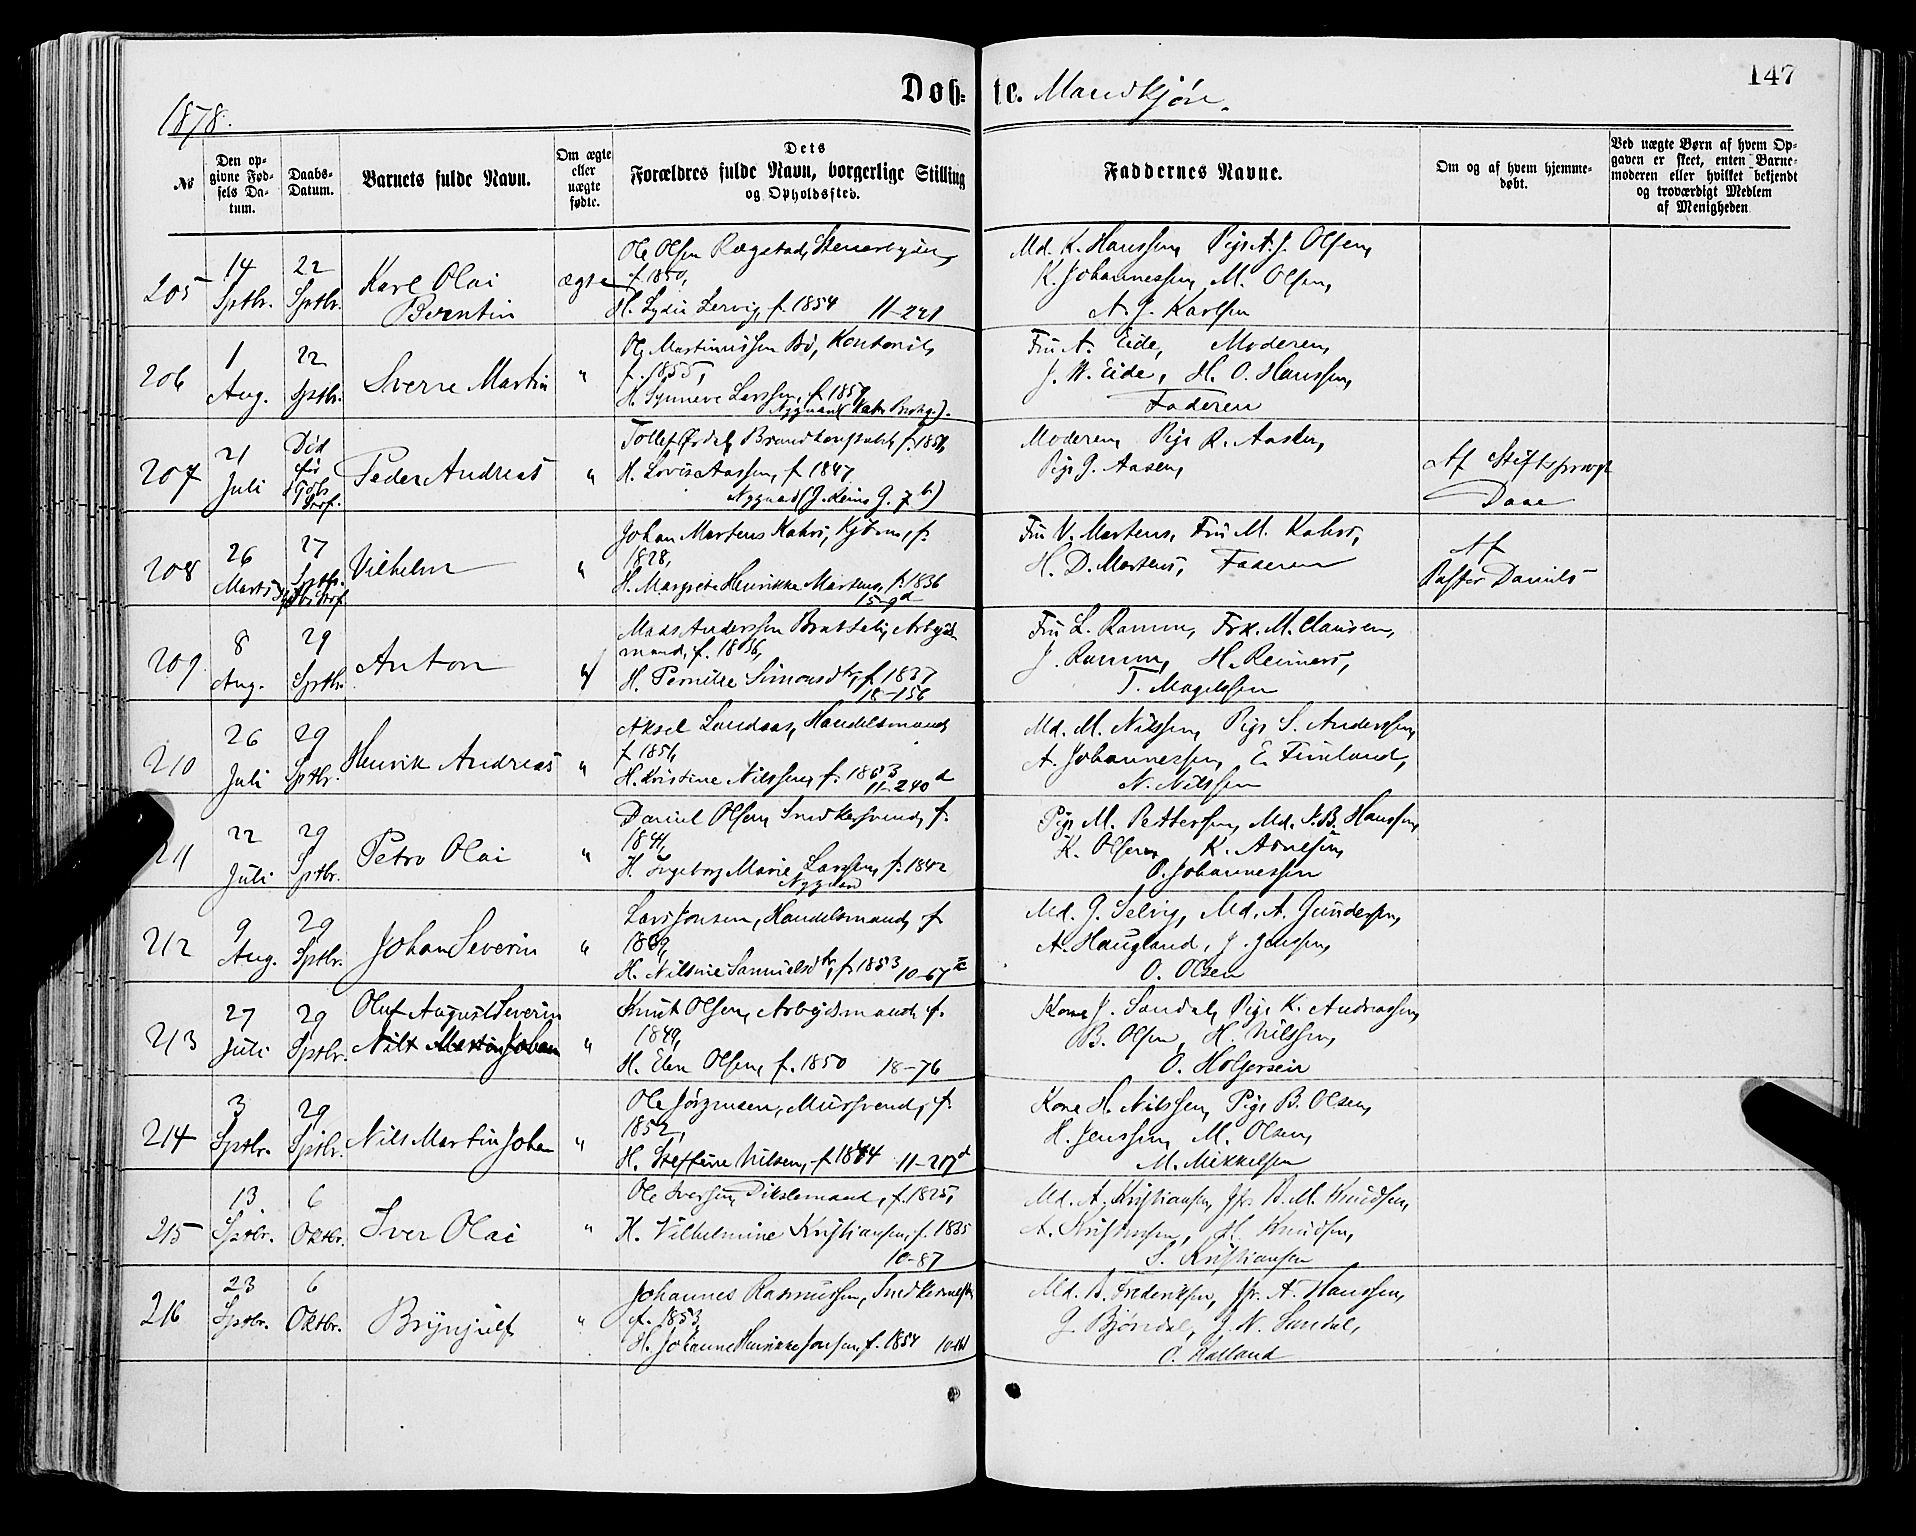 147
Døbte. Mandkjøn.
1878.
№
Den opgivne Fødsels Datum.
Daabs-Datum.
Barnets fulde Navn.
Om ægte eller uægte fødte.
Dets
Forældres fulde Navn, borgerlige Stilling
og Opholdssted.
Faddernes Navne.
Om og af hvem hjemmedøbt.
Ved uægte Børn af hvem Opgaven er skeet, enten Barnemoderen eller hvilket bekjendt og troværdigt Medlem af Menigheden
205 14 Sptbr. 22 Sptbr. Karl Olai Berntin ægte
Ole Olsen Rægstad,
f. 1850,
H. Lydia Lervig, f. 1854 11-221
Md. K. Hanssen, Pige A. J. Olsen,
K. Johannessen, M. Olsen,
A. G. Karlsen
206 1 Aug. 22 Sptbr. Sverre Martin "
Ole Martinussen Bø, Kontorist,
f. 1855,
H. Synneve Larssen, f. 1857
Nygaard
Fru A. Eide, Moderen,
J. W. Eide, H. O. Hanssen,
Faderen
207 21 Juli Død før Peder Andreas "
Tollef Ørdal, Brandkonstabel, f. 1851,
H. Lovise Aassen, f. 1847
Nygaard
Moderen, Pige R. Aasen,
Pige G. Aasen,
Af Stiftsprovst
Daae
208 26 Marts 27 Sptbr. Vilhelm "
Johan Martens Kahrs, Kjøbm., f.
1828,
H. Margrete Henrikke Martens, f. 1836
15-9d
Fru V. Martens, Fru M. Kahrs,
H. D. Martens, Faderen
Af
Pastor Daniels
209 8 Aug. 29 Sptbr. Anton
Mads Anderssen Brattebø, Arbeids
mand, f. 1836,
H. Pernille Simonsdtr, f. 1837
18-156
Fru L. Ramm, Frk. M. Clausen,
J. Ramm, H. Reimers,
T. Magelssen
210 26 Juli 29 Sptbr. Henrik Andreas "
Aksel Landaas, Handelsmand
f. 1851,
H. Kristine Nilssen, f. 1853
11-240d
Md. M. Nilssen, Pige S. Anderssen,
A. Johannessen, E. Finland,
N. Nilssen
211 22 Juli 29 Sptbr. Petro Olai "
Daniel Olsen, Snedkersvend, f.
1841,
H. Ingeborg Marie Larssen, f. 1842
Nygaard
Pige M. Pettersen, Md. N. B. Hanssen,
K. Olsen, K. Arnesen,
O. Johannessen
212 9 Aug. 29 Sptbr. Johan Severin "
Lars Jonsen, Handelsmand, f.
1849,
H. Nilsine Samuelsdtr, f. 1853 10-67
Md. G. Selvig, Md. A. Gundersen,
A. Haugland, J. Jenssen,
O. Olsen
213 27 Juli 29 Sptbr. Oluf August Severin
Nils Martin Johan "
Knut Olsen, Arbeidsmand, f.
1849,
H. Elen Olsen, f. 1850 18-76
Kone J. Sandal, Pige K. Andreassen,
B. Olsen, H. Nilssen,
O. Holgersen
214 3 Sptbr. 29 Sptbr. Nils Martin Johan "
Ole Jørgensen, Mursvend, f.
1852,
H. Steffine Nilsen, f. 1844 11-217d
Kone H. Nilssen, Pige B. Olsen,
H. Jenssen, M. Olsen,
M. Mikkelsen
215 13 Sptbr. 6 Oktbr. Iver Olai "
Ole Iversen, f. 1825,
H. Vilhelmine Kristiansen, f. 1835
10-87
Md. A. Kristiansen, Jfr. B. M. Knudsen,
A. Kristensen, H. Knudsen,
S. Kristiansen
216 23 Sptbr. 6 Oktbr. Brynjulf "
Johannes Rasmussen, Snedkermester
f. 1853,
H. Johanne Henrikke Jonsen, f. 1854
Md. B. Frederiksen, Jfr. A. Hanssen,
G. Bjørndal, J. N. Sandal,
O. Halland